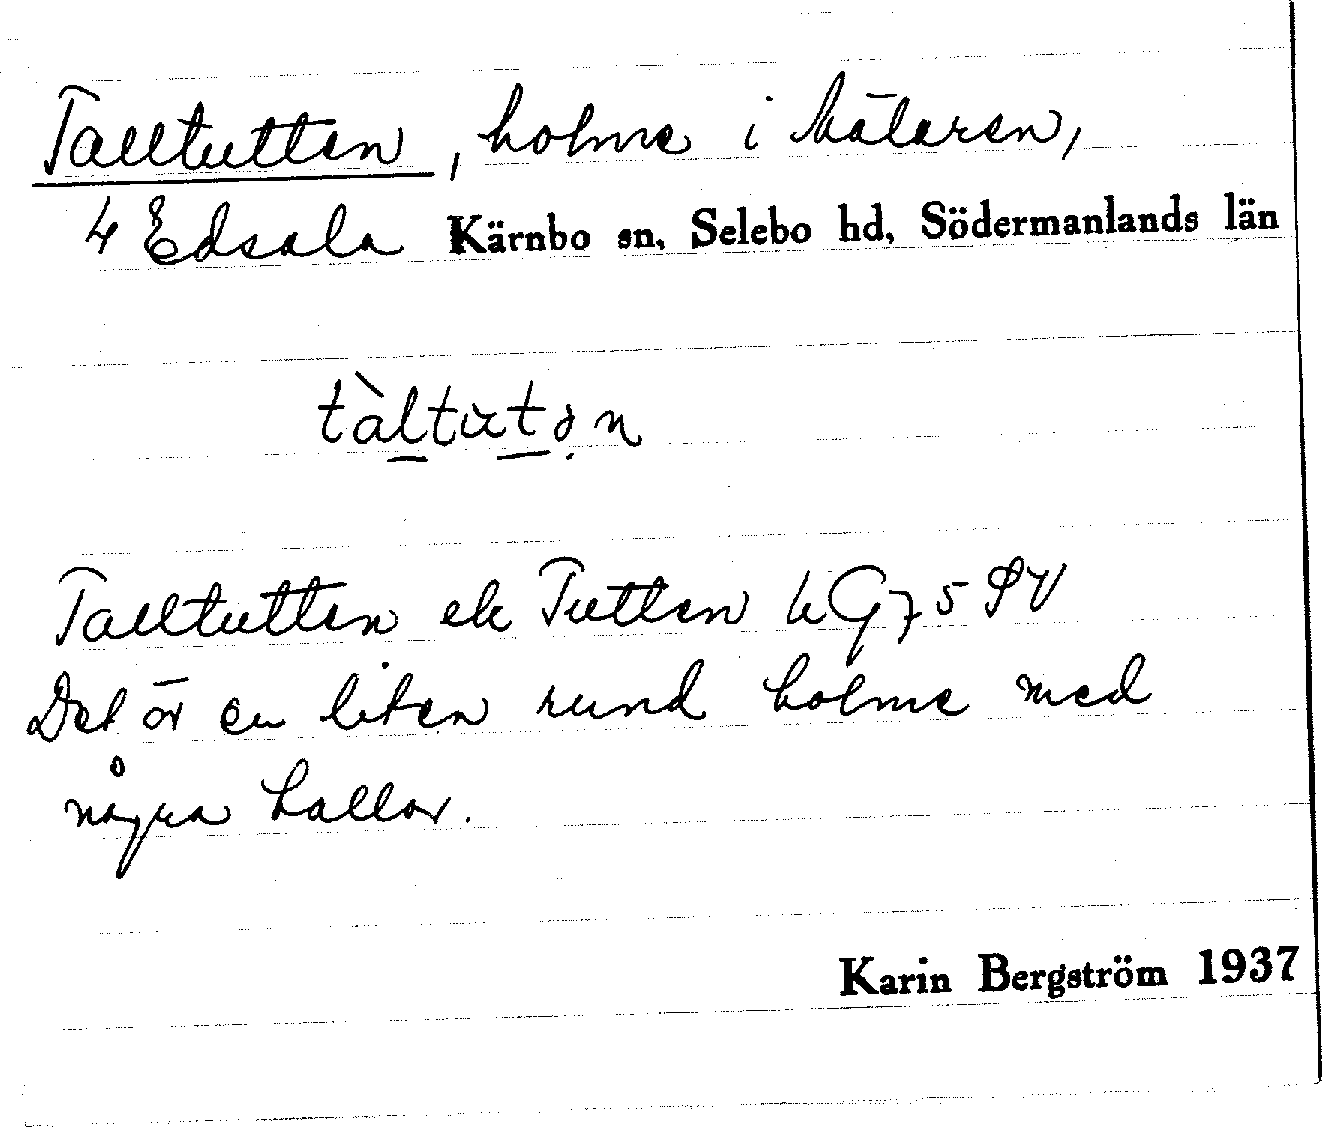 Talltutten, holme i Mälaren,
4 Edsala Kärnbo sn, Selebo hd, Södermanlands län
tàltutən
Talltutten el Tutten hG75
Det är en liten rund holme med
några hällar.
Karin Bergström 1937